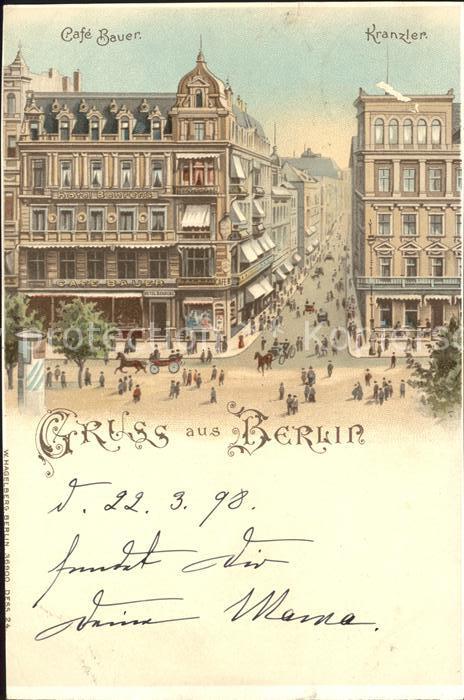 Café Bauer.
Kranzler.
CAFÉ BAUER
GRUSS AUS BERLIN
d. 22. 3. 98.
sendet Dir
Deine Mama.
W. HAGELBERG, BERLIN. 36900. DESS. 24.